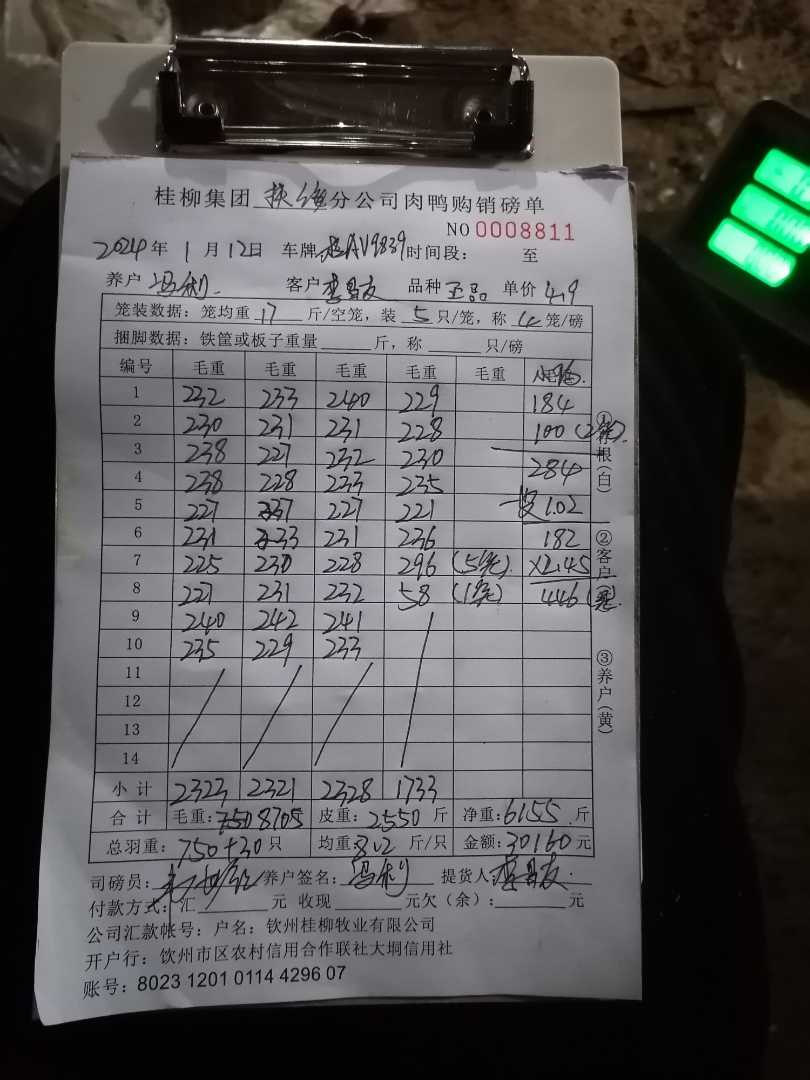 桂柳集团 分公司肉鸭购销磅单
NO 0008811
2024年 1月 12日 车牌 AV9839 时间段: 至
养户 冯利 客户 李昌友 品种 正品 单价 4.9
笼装数据:笼均重 17 斤/空笼,装 5 只/笼,称 4 笼/磅
捆脚数据:铁筐或板子重量 斤,称 只/磅
编号 毛重 毛重 毛重 毛重 毛重
1 232 233 240 229 184
2 230 231 231 228 100
3 238 227 232 230 284
4 238 228 233 235 102
5 227 237 227 221 182
6 231 233 231 236 ×2.45
7 225 230 228 296 (5笼) 446
8 227 231 232 58 (1笼)
9 240 242 241
10 235 229 233
11
12
13
14
小计 2323 2321 2328 1733
合计 毛重: 8705 皮重: 2550 斤 净重: 6155 斤
总羽重: 750+30 只 均重: 8.02 斤/只 金额: 30160 元
司磅员: 养户签名: 冯利 提货人: 李昌友
付款方式:汇 元 收现 元欠(余): 元
公司汇款帐号:户名:钦州桂柳牧业有限公司
开户行:钦州市区农村信用合作联社大垌信用社
账号:8023 1201 0114 4296 07
①存根(白)
②客户
③养户(黄)